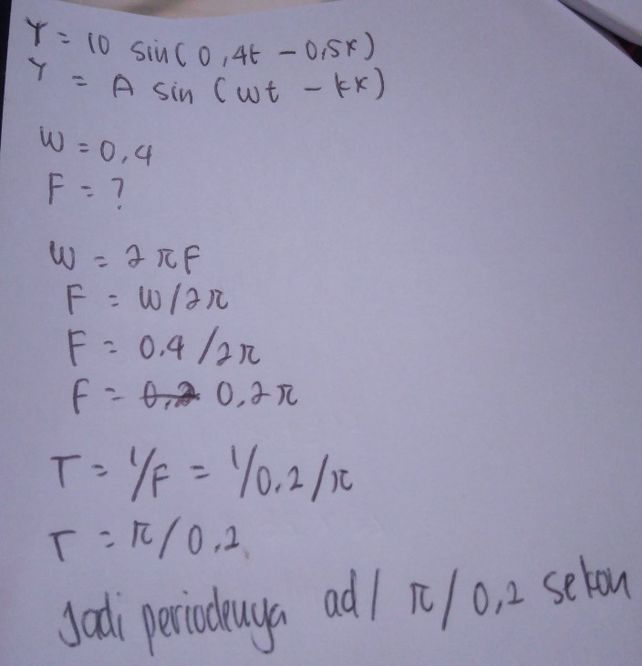 Y = 10 sin(0,4t - 0,5x)
Y = A sin (wt - kx)
W = 0,4
F = ?
W = 2πF
F = W/2π
F = 0.4/2π
F = 0,2π
T = 1/F = 1/0.2/π
T = π/0.2
Jadi periodenya ad/ π/0,2 sekon